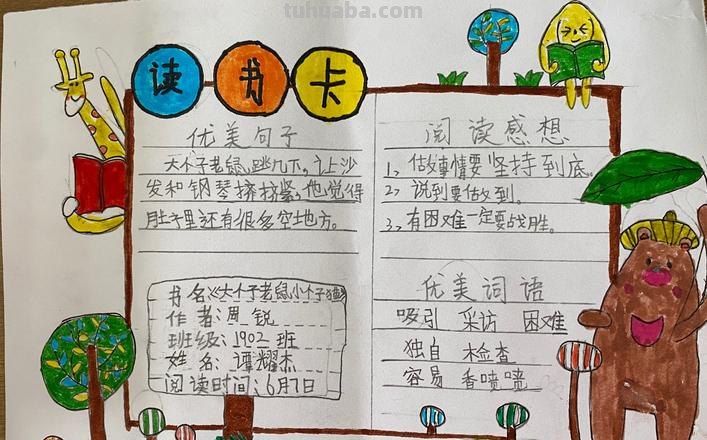 tuhuaba.com
读书卡
优美句子
大个子老鼠跳几下,让沙
发和钢琴挤挤紧,他觉得
肚子里还有很多空地方。
书名:《大个子老鼠小个子猫》
作者:周锐
班级:1902班
姓名:谭耀杰
阅读时间:6月7日
阅读感想
1、做事情要坚持到底。
2、说到要做到。
3、有困难一定要战胜。
优美词语
吸引 采访 困难
独自 检查
容易 香喷喷